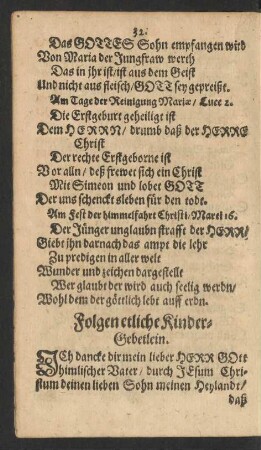 32.
Das GOTTES Sohn empfangen wird
Von Maria der Jungfraw werth
Das in jhr ist/ist aus dem Geist
Und nicht aus fleisch/GOTT sey gepreißt.
Am Tage der Reinigung Mariæ/ Luce 2.
Die Erstgeburt geheiliget ist
Dem HERRN/ drumb daß der HERRE
Christ
Der rechte Erstgeborne ist
Vor alln/ deß frewet sich ein Christ
Mit Simeon und lobet GOTT
Der uns schenckt sleben für den todt.
Am Fest der himmelfahrt Christi/ Marci 16.
Der Jünger unglaubn strafft der HERR/
Giebt jhn darnach das ampt die lehr
Zu predigen in aller welt
Wunder und zeichen dargestellt
Wer glaubt der wird auch seelig werdn/
Wohl dem der göttlich lebt auff erdn.
Folgen etliche Kinder-
Gebetlein.
ICh dancke dir mein lieber HERR GOtt
himlischer Vater/ durch JEsum Chri-
stum deinen lieben Sohn meinen Heylandt/
daß